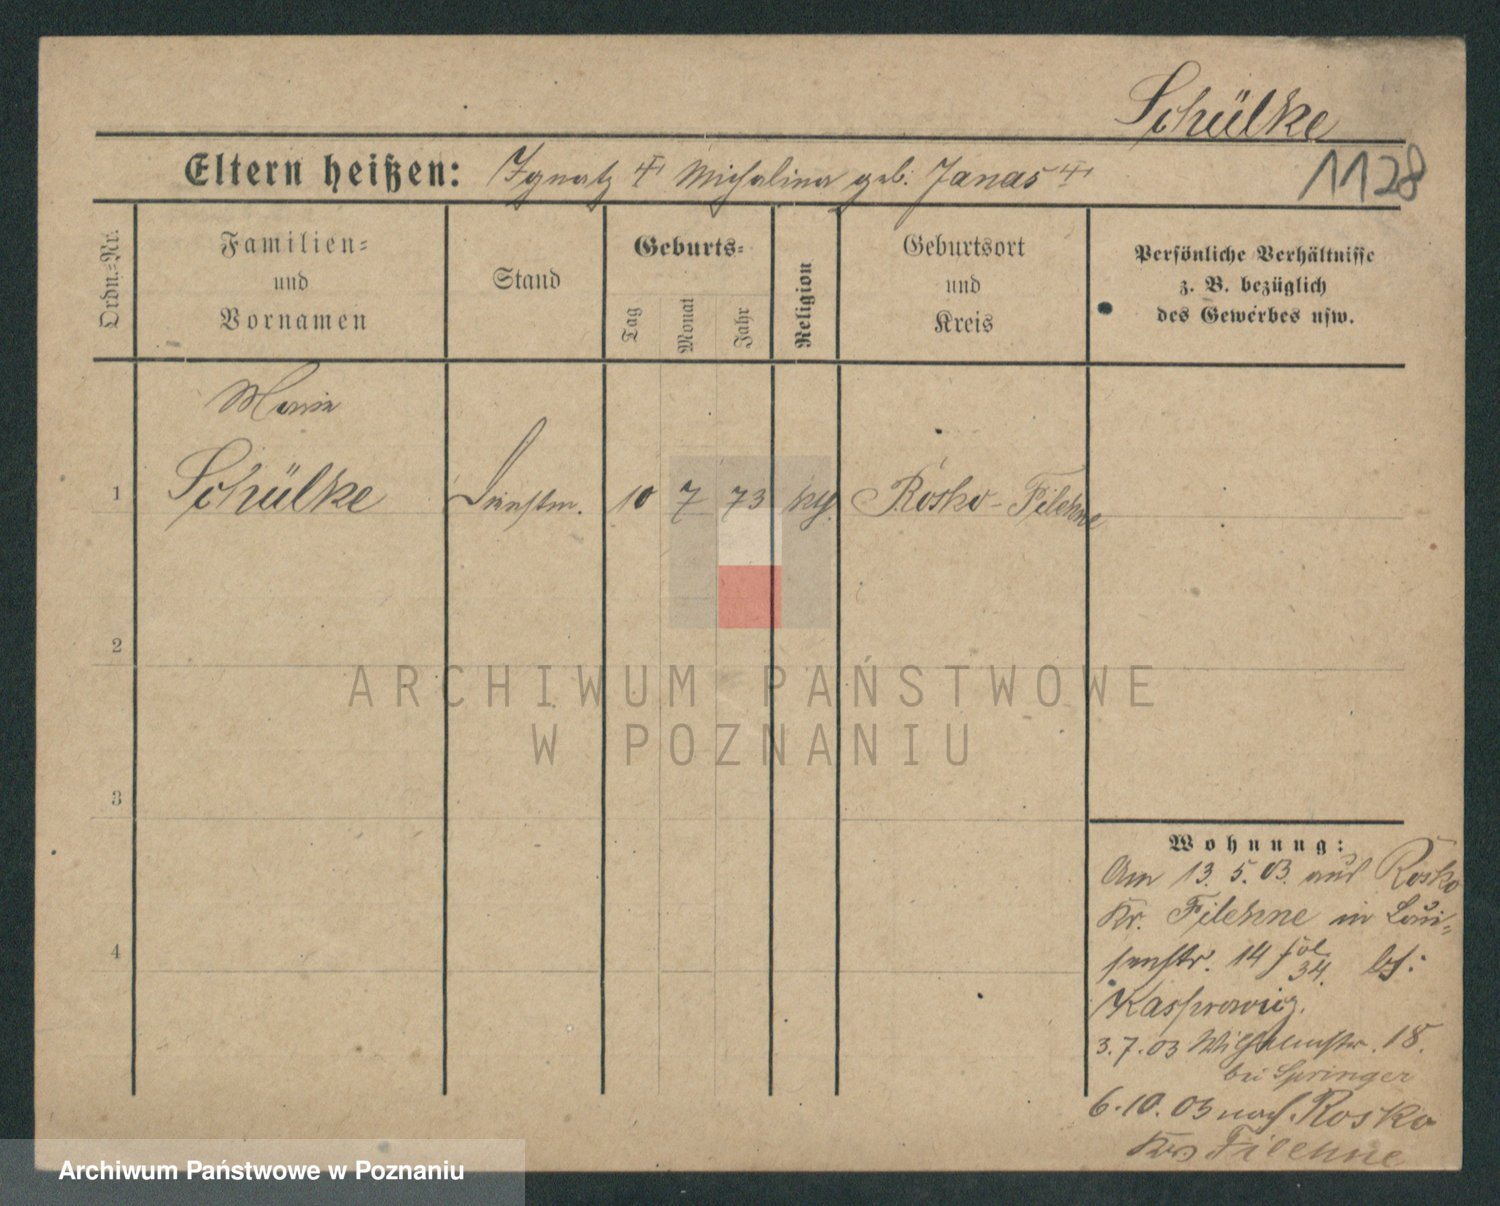 Schülke
1128
Eltern heißen: Ignatz † Michalina geb. Janas †
Ordn.=Nr.
Familien=
und
Vornamen
Stand
Geburts=
Tag
Monat
Jahr
Religion
Geburtsort
und
Kreis
Persönliche Verhältnisse
z. B. bezüglich
des Gewerbes usw.
Marie
1 Schülke Dienstm. 10 7 73 kth. Rosko - Filehne
2
3
4
ARCHIWUM PAŃSTWOWE
W POZNANIU
Wohnung:
Am 13. 5. 03. aus Rosko
Kr. Filehne in Loui-
senstr. 14 34. bei:
Kasprowicz.
3.7.03 Wilhelmstr. 18.
bei Springer
6.10.03 nach Rosko
Krs Filehne
Archiwum Państwowe w Poznaniu